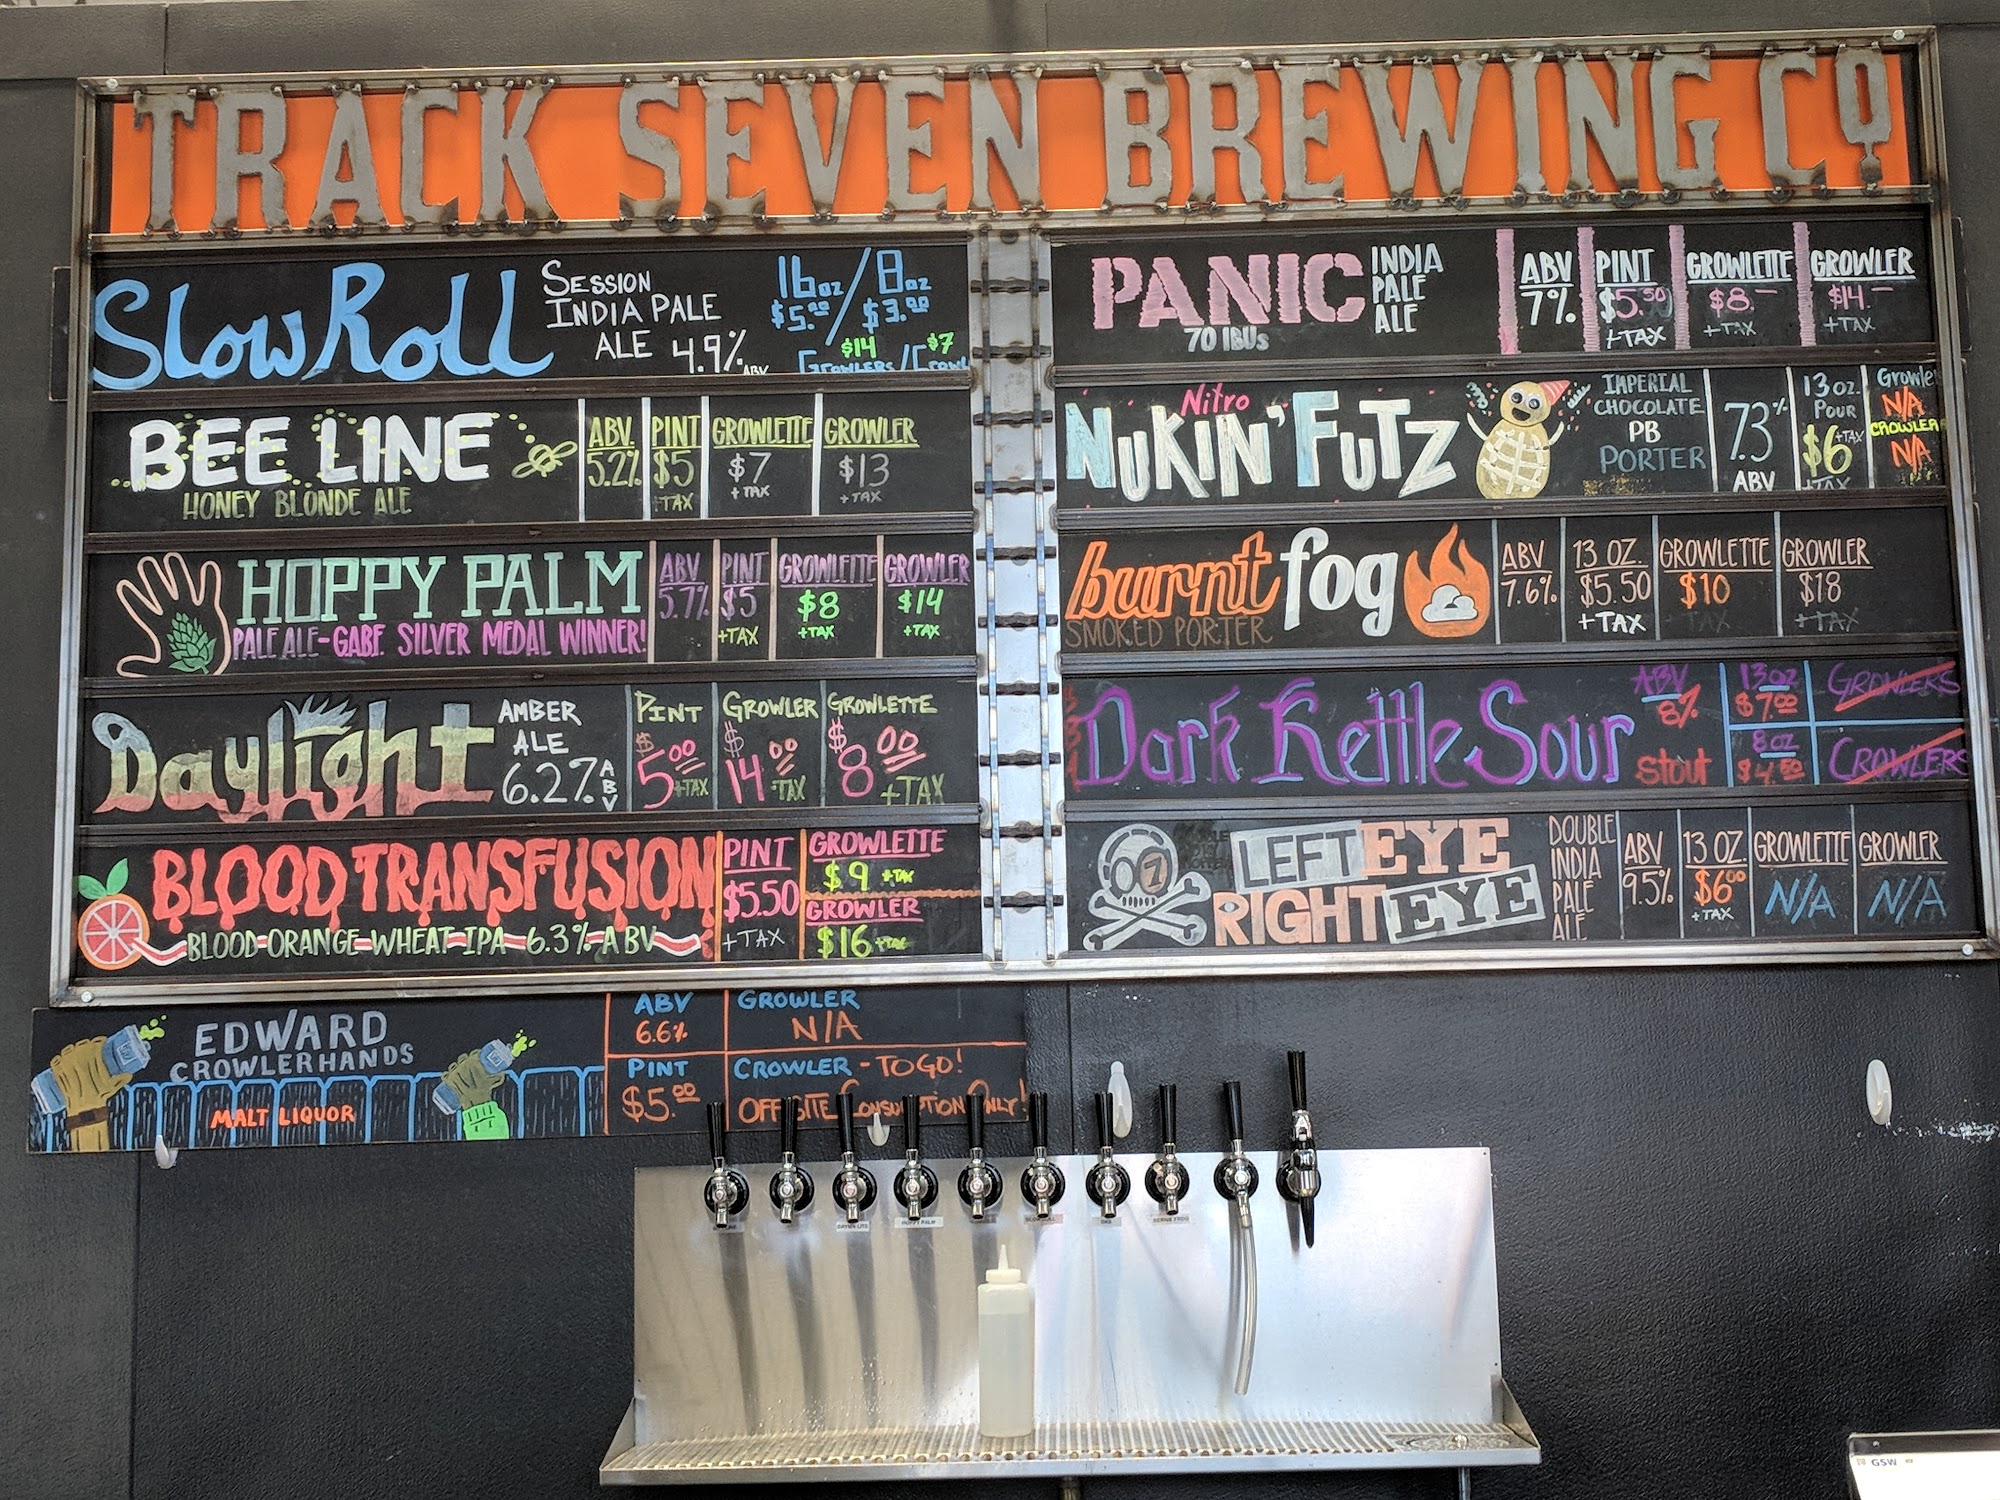 TRACK SEVEN BREWING CO
SlowRoll
SESSION
INDIA PALE
ALE 4.9% ABV
16oz/8oz
$5.00/$3.00
$14 $7
GROWLERS/CROWL
BEE LINE
HONEY BLONDE ALE
ABV. PINT GROWLETTE GROWLER
5.2% $5 $7 $13
+TAX +TAX +TAX
HOPPY PALM
PALE ALE-GABF SILVER MEDAL WINNER!
ABV PINT GROWLETTE GROWLER
5.7% $5 $8 $14
+TAX +TAX +TAX
Daylight
AMBER
ALE
6.2% ABV
PINT GROWLER GROWLETTE
$5.00 $14.00 $8.00
+TAX +TAX +TAX
BLOOD TRANSFUSION
BLOOD-ORANGE-WHEAT IPA 6.3% ABV
PINT
$5.50
+TAX
GROWLETTE
$9 +TAX
GROWLER
$16 +TAX
EDWARD
CROWLERHANDS
MALT LIQUOR
ABV
6.6%
PINT
$5.00
GROWLER
N/A
CROWLER - TO GO!
OFFSITE CONSUMPTION ONLY!
PANIC
70 IBUs
INDIA
PALE
ALE
ABV PINT GROWLETTE GROWLER
7% $5.50 $8.- $14.-
+TAX +TAX +TAX
Nitro
NUKIN' FUTZ
IMPERIAL
CHOCOLATE
PB
PORTER
7.3%
ABV
13 oz.
POUR
$6 +TAX
+TAX
Growle
N/A
CROWLER
N/A
burnt fog
SMOKED PORTER
ABV 13 OZ. GROWLETTE GROWLER
7.6% $5.50 $10 $18
+TAX +TAX +TAX
Dark Kettle Sour
ABV
8%
stout
13oz
$7.00
8oz
$4.50
GROWLERS
CROWLERS
LEFT EYE
RIGHT EYE
DOUBLE
INDIA
PALE
ALE
ABV 13 OZ. GROWLETTE GROWLER
9.5% $6.00 N/A N/A
+TAX
HOPPY PALM
GSW